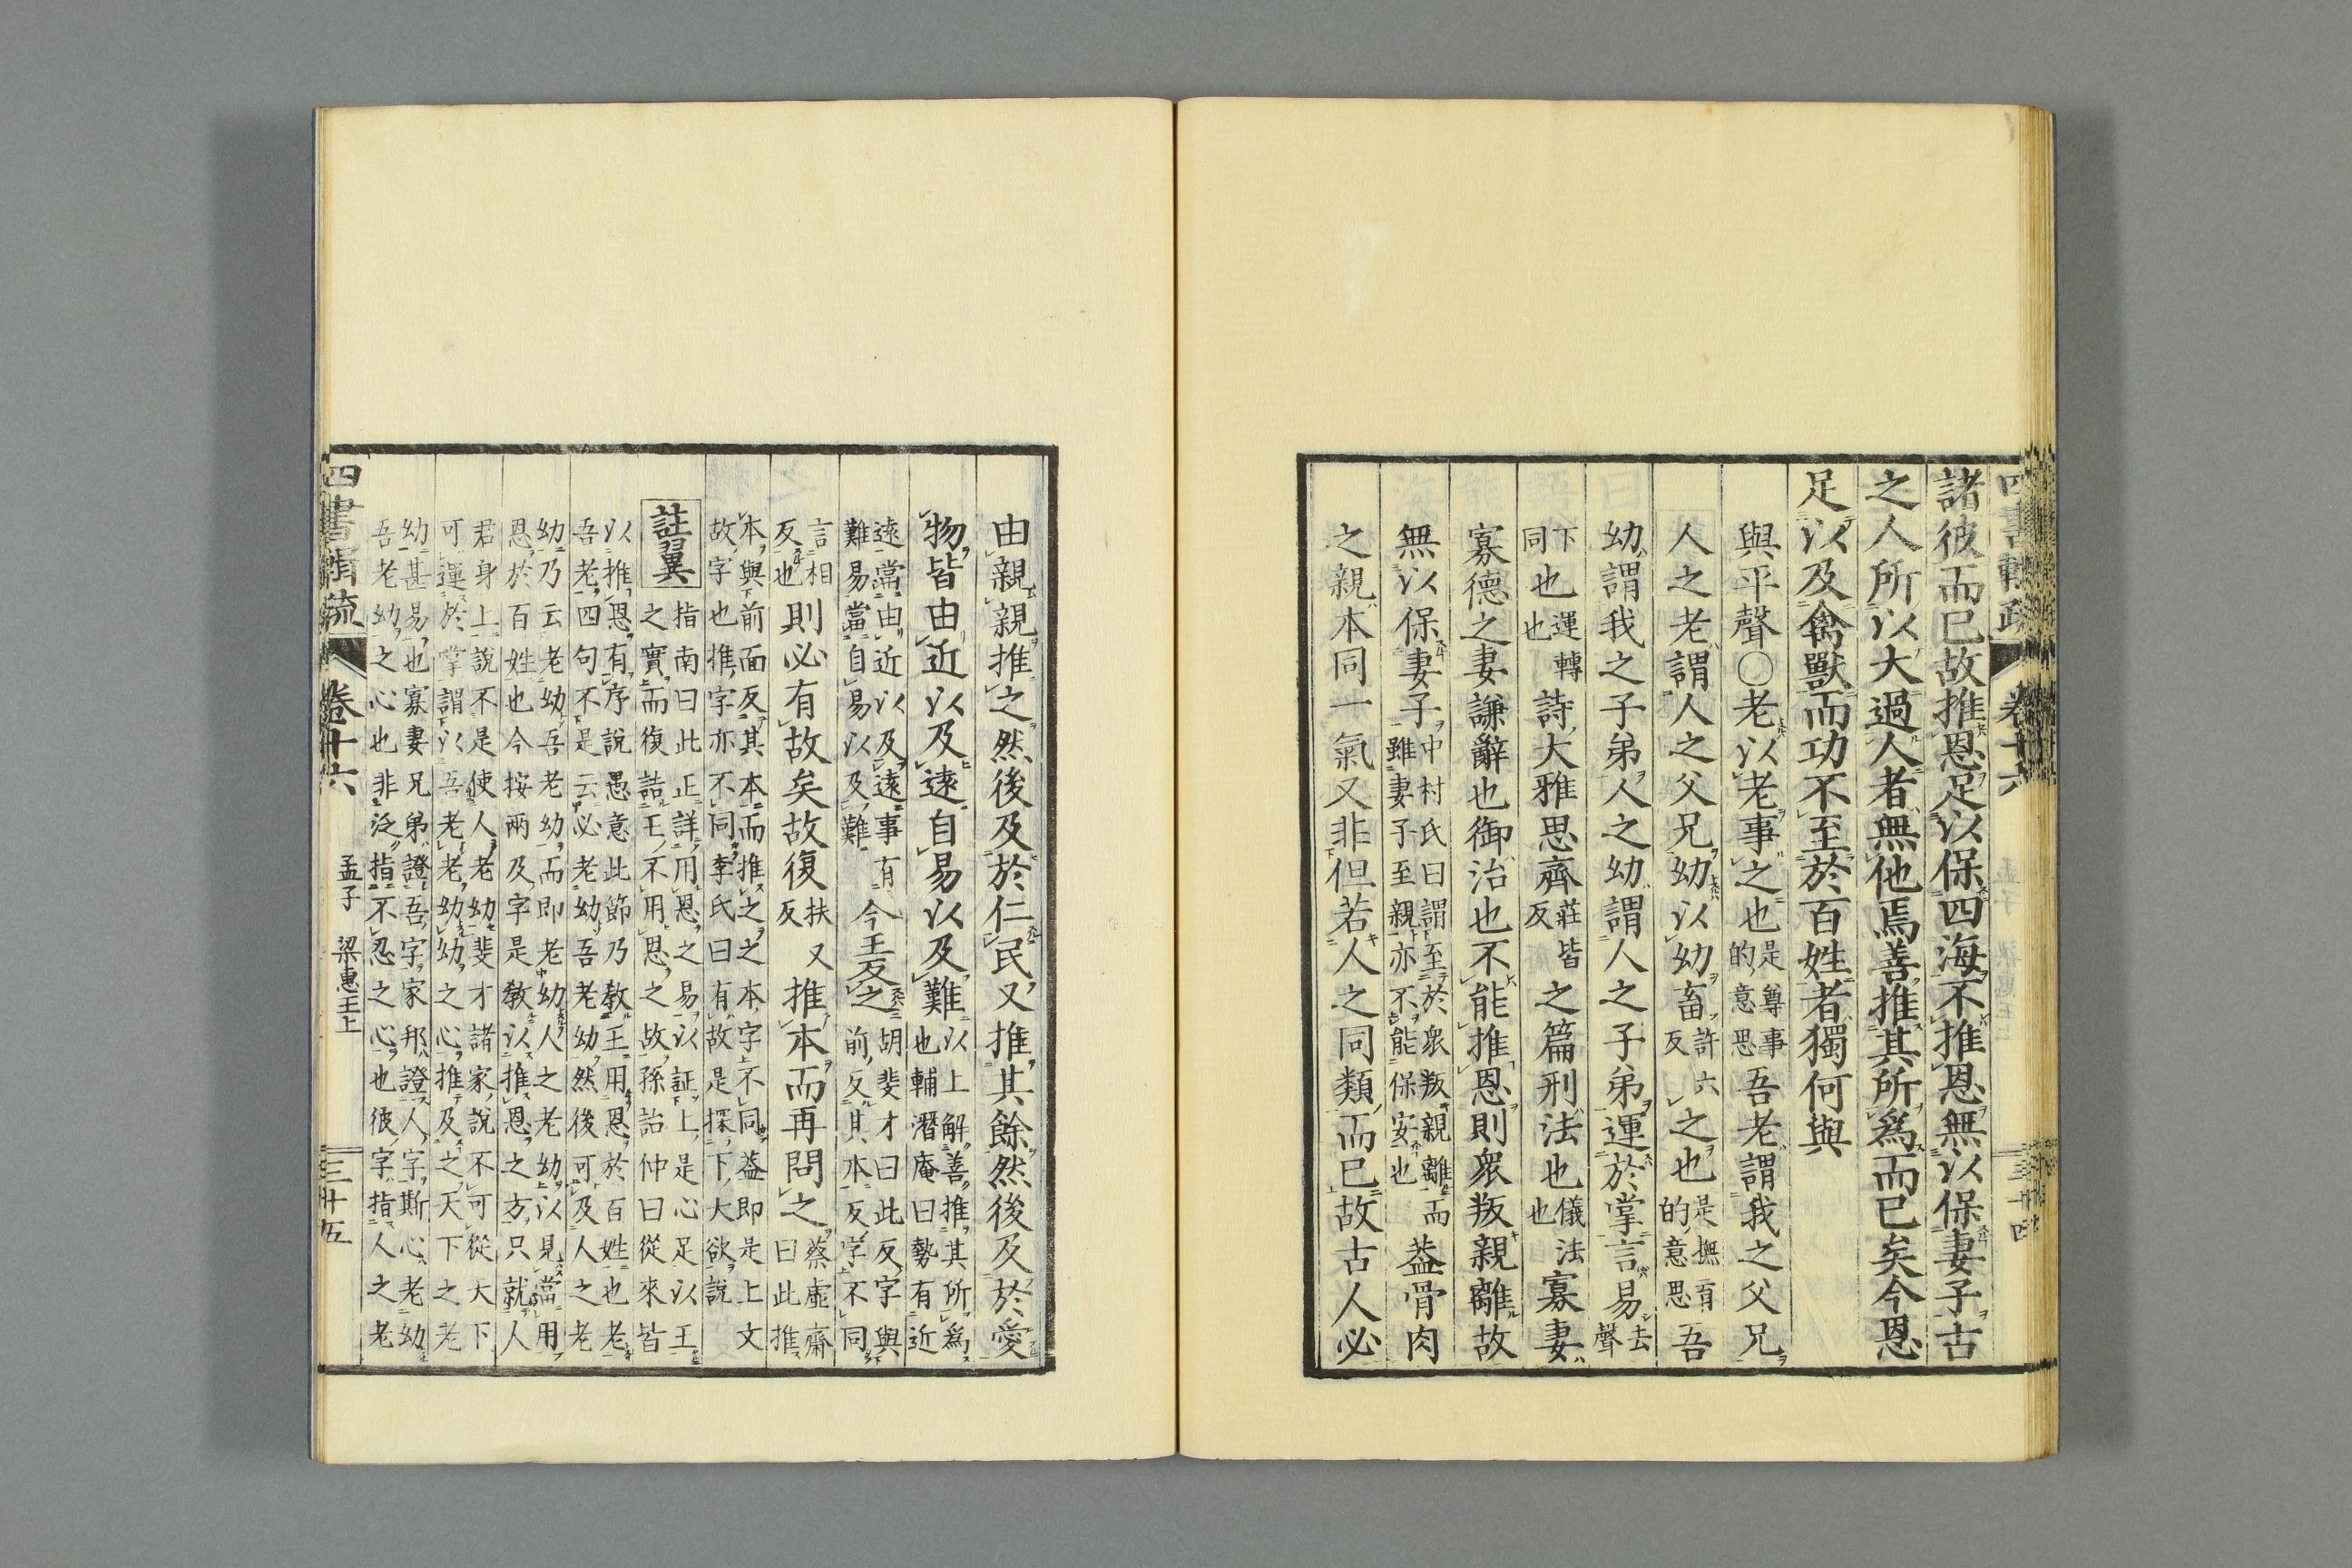 四書輯疏 卷十六 三十四
諸彼而已故推恩足以保四海不推恩無以保妻子古
之人所以大過人者無他焉善推其所爲而已矣今恩
足以及禽獸而功不至於百姓者獨何與
與平聲○老以老事之也是尊事的意思吾老謂我之父兄
人之老謂人之父兄幼以幼畜許六反之也是撫育的意思吾
幼謂我之子弟人之幼謂人之子弟運於掌言易去聲
下同也運轉也詩大雅思齊莊皆反之篇刑法也儀法也寡妻
寡德之妻謙辭也御治也不能推恩則衆叛親離故
無以保妻子中村氏曰謂至於衆叛親離而雖妻子至親亦不能保安也蓋骨肉
之親本同一氣又非但若人之同類而已故古人必
由親親推之然後及於仁民又推其餘然後及於愛
物皆由近以及遠自易以及難以上解善推其所爲也輔潛庵曰勢有近
遠當由近以及遠事有難易當自易以及難今王反之胡斐才曰此反字與前反其本反字不同
言相反也則必有故矣故復扶又反推本而再問之蔡虛齋曰此推
本與前面反其本而推之之本字不同蓋即是上文
故字也推字亦不同李氏曰有故是探下大欲說
註翼 指南曰此正詳用恩之易以証上是心足以王
之實而復詰王不用恩之故孫詒仲曰從來皆
以推恩有序說愚意此節乃敎王用恩於百姓也老
吾老四句不是云必老幼吾老幼然後可及人之老
幼乃云老幼吾老幼而即老幼人之老幼以見當用
恩於百姓也今按兩及字是敎以推恩之方只就人
君身上說不是使人老老幼幼斐才諸家說不可從大下
可運於掌謂以吾老老幼幼之心推及之天下之老
幼甚易也寡妻兄弟證吾字家邦證人字斯心老幼
吾老幼之心也非泛指不忍之心也彼字指人之老
四書輯疏 卷十六 孟子 梁惠王上 三十五